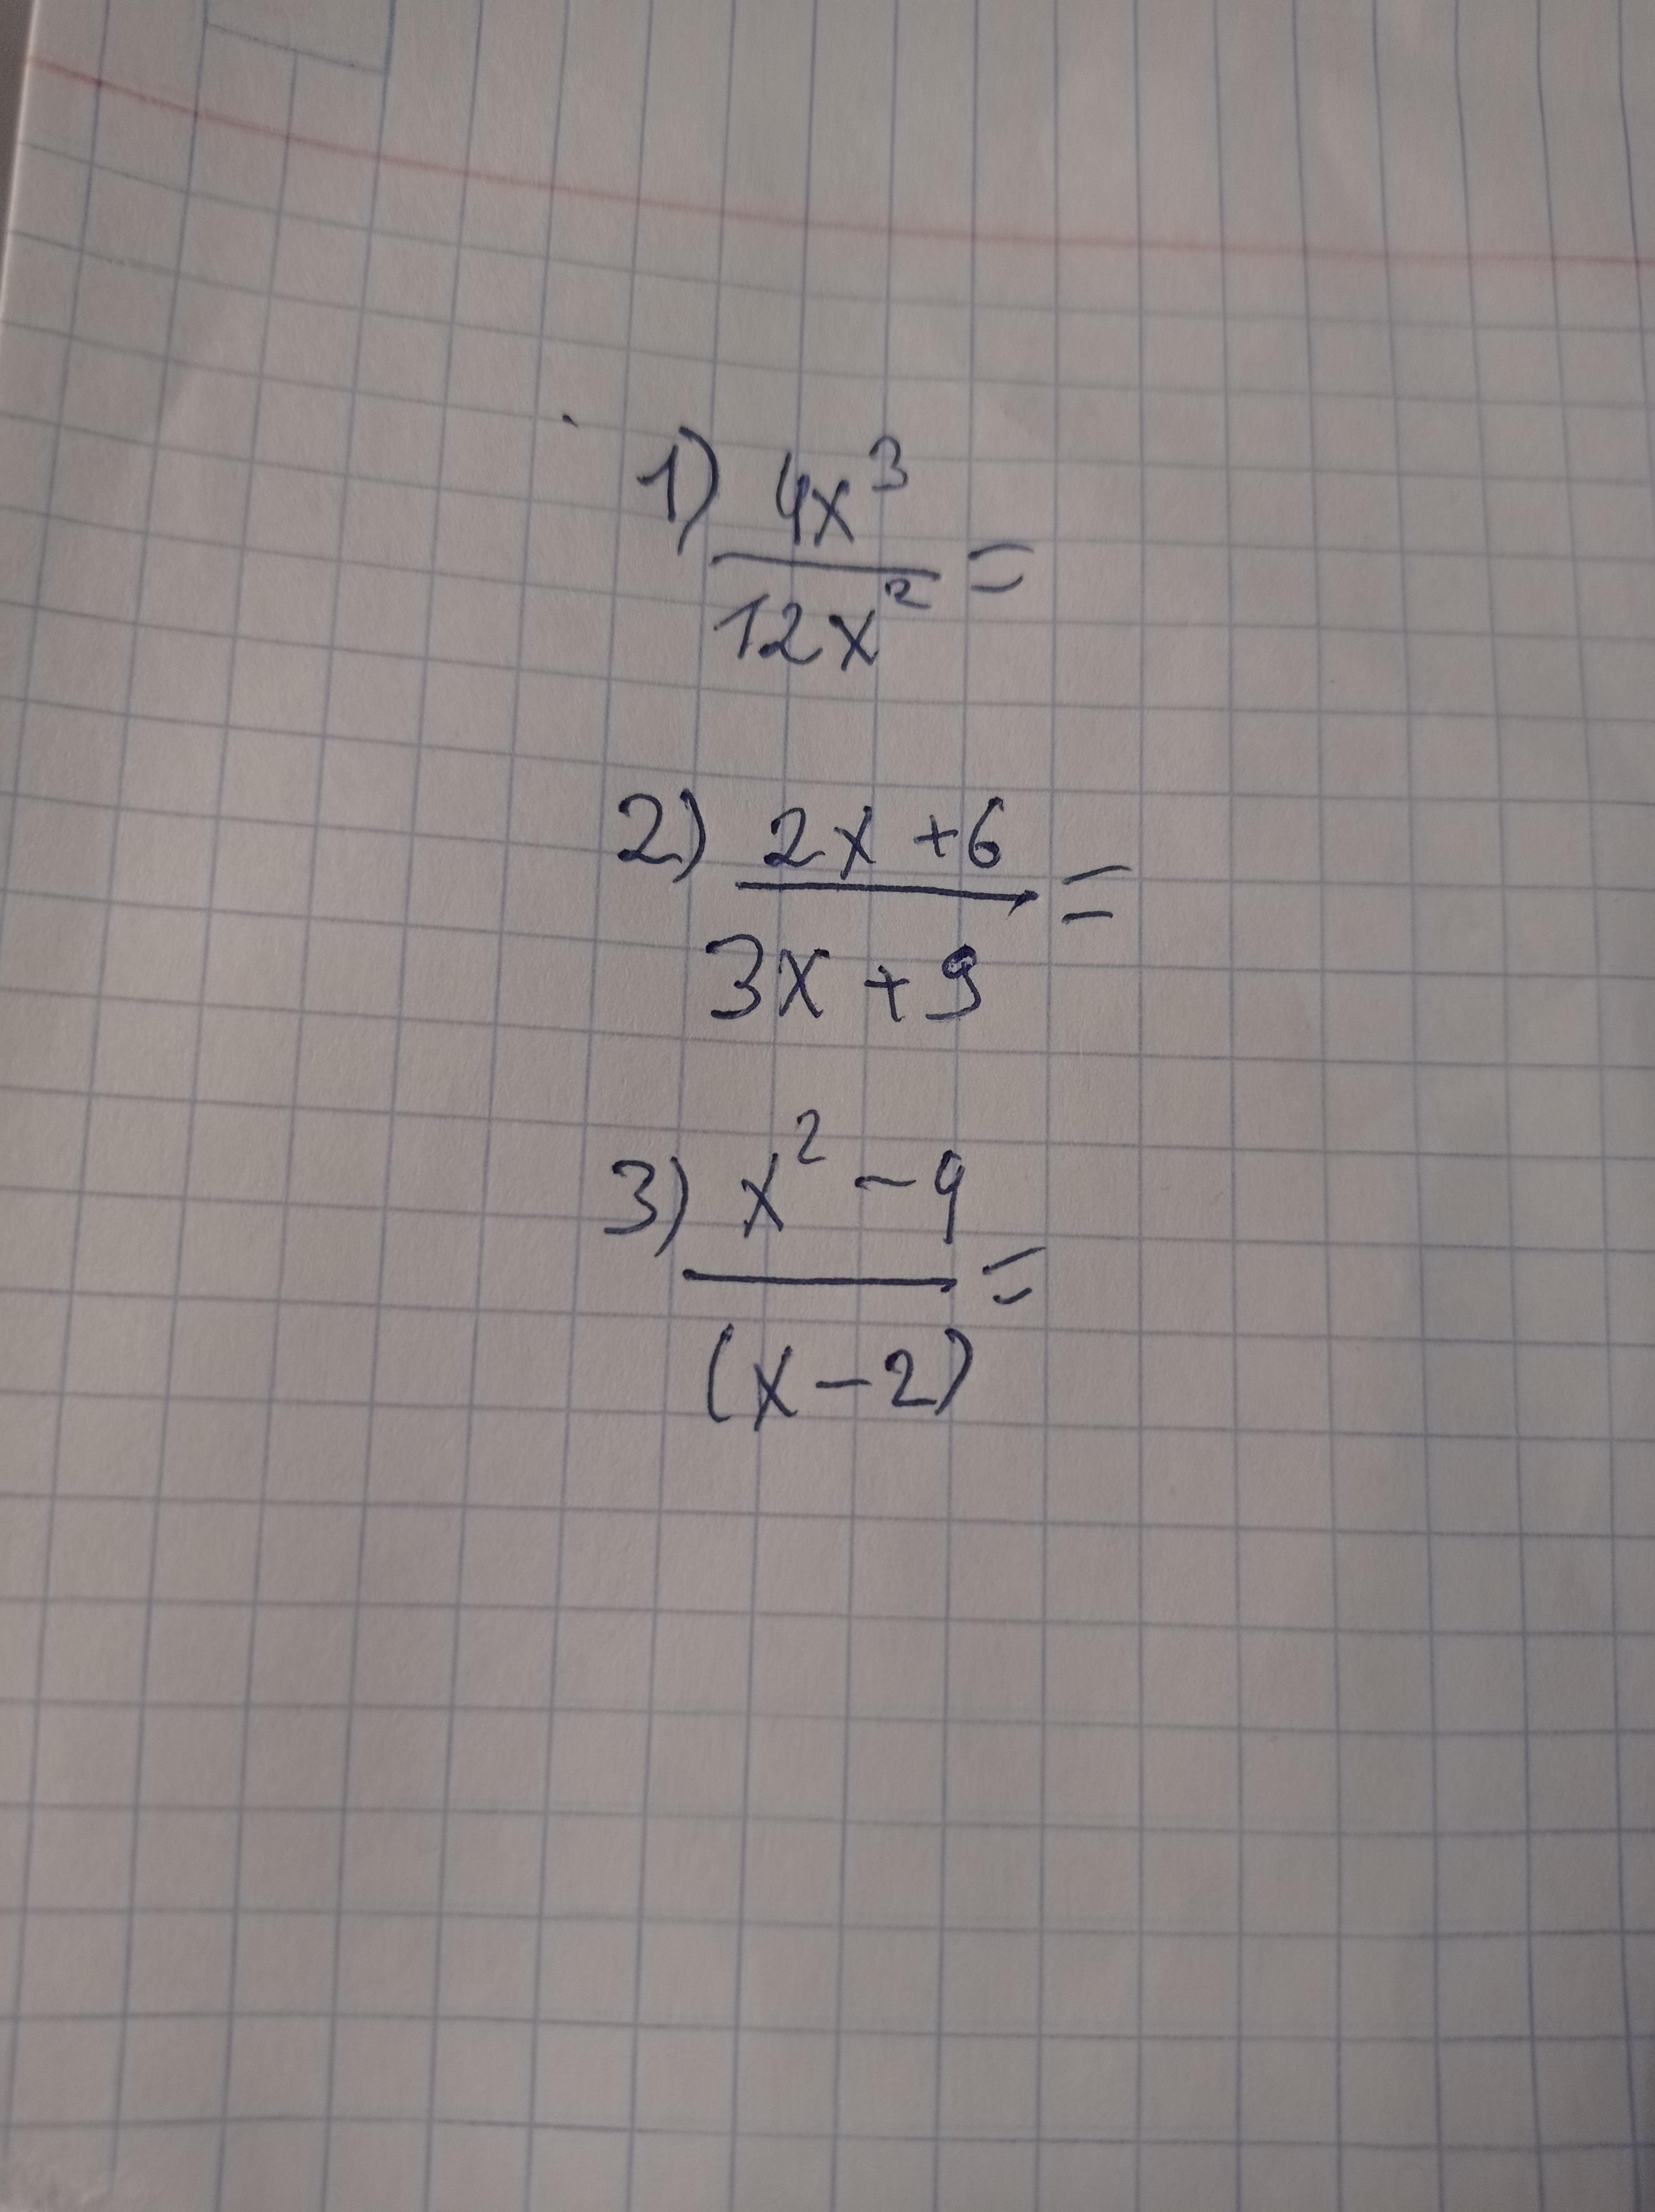 1) 4x³
12x² =
2) 2x + 6
3x + 9 =
3) x² - 9
(x - 2) =